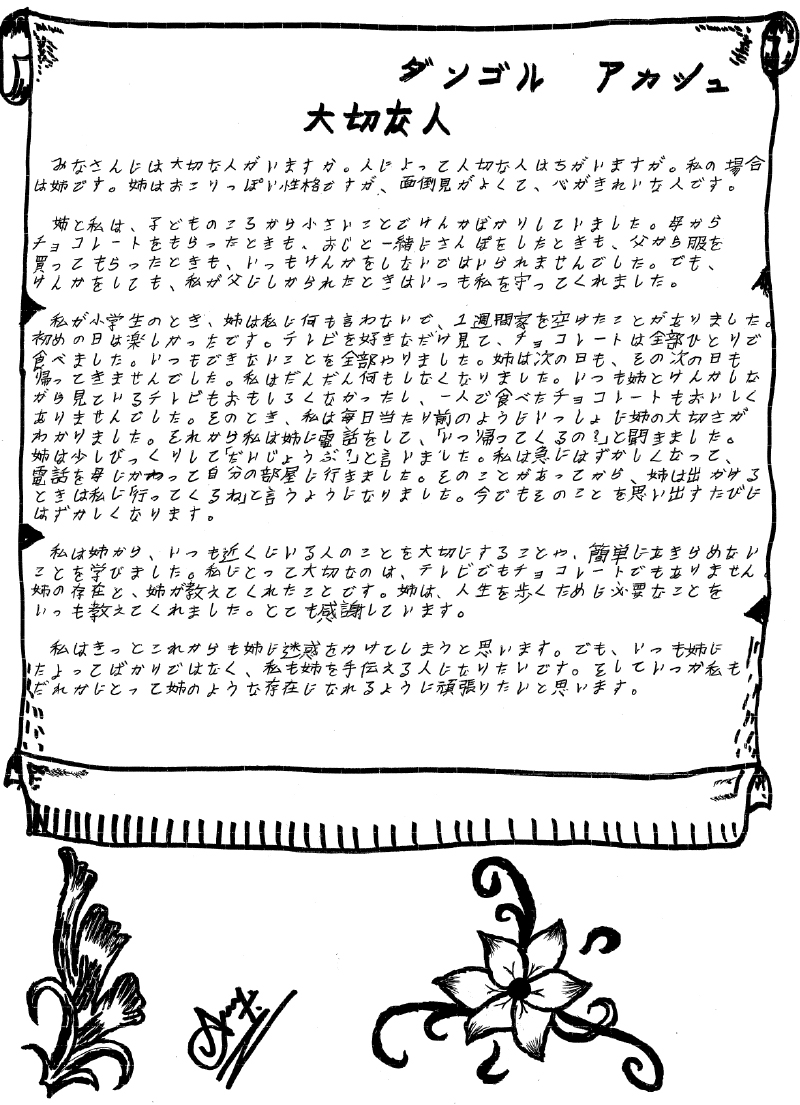 ダンゴル アカシュ
大切な人
みなさんには大切な人がいますか。人によって大切な人はちがいますが。私の場合
は姉です。姉はおこりっぽい性格ですが、面倒見がよくて、心がきれいな人です。
姉と私は、子どものころから小さいことでけんかばかりしていました。母から
チョコレートをもらったときも、おじと一緒にさんぽをしたときも、父から服を
買ってもらったときも、いつもけんかをしないではいられませんでした。でも、
けんかをしても、私が父にしかられたときはいつも私を守ってくれました。
私が小学生のとき、姉は私に何も言わないで、1週間家を空けたことがありました。
初めの日は楽しかったです。テレビを好きなだけ見て、チョコレートは全部ひとりで
食べました。いつもできないことを全部やりました。姉は次の日も、その次の日も
帰ってきませんでした。私はだんだん何もしなくなりました。いつも姉とけんかしな
がら見ているテレビもおもしろくなかったし、一人で食べたチョコレートもおいしく
ありませんでした。そのとき、私は毎日当たり前のようにいっしょに姉の大切さが
わかりました。それから私は姉に電話をして、「いつ帰ってくるの?」と聞きました。
姉は少しびっくりして「だいじょうぶ?」と言いました。私は急にはずかしくなって、
電話を母にかわって自分の部屋に行きました。そのことがあってから、姉は出かける
ときは私に「行ってくるね」と言うようになりました。今でもそのことを思い出すたびに
はずかしくなります。
私は姉から、いつも近くにいる人のことを大切にすることや、簡単にあきらめない
ことを学びました。私にとって大切なのは、テレビでもチョコレートでもありません。
姉の存在と、姉が教えてくれたことです。姉は、人生を歩くために必要なことを
いつも教えてくれました。とても感謝しています。
私はきっとこれからも姉に迷惑をかけてしまうと思います。でも、いつも姉に
たよってばかりではなく、私も姉を手伝える人になりたいです。そしていつか私も
だれかにとって姉のような存在になれるように頑張りたいと思います。